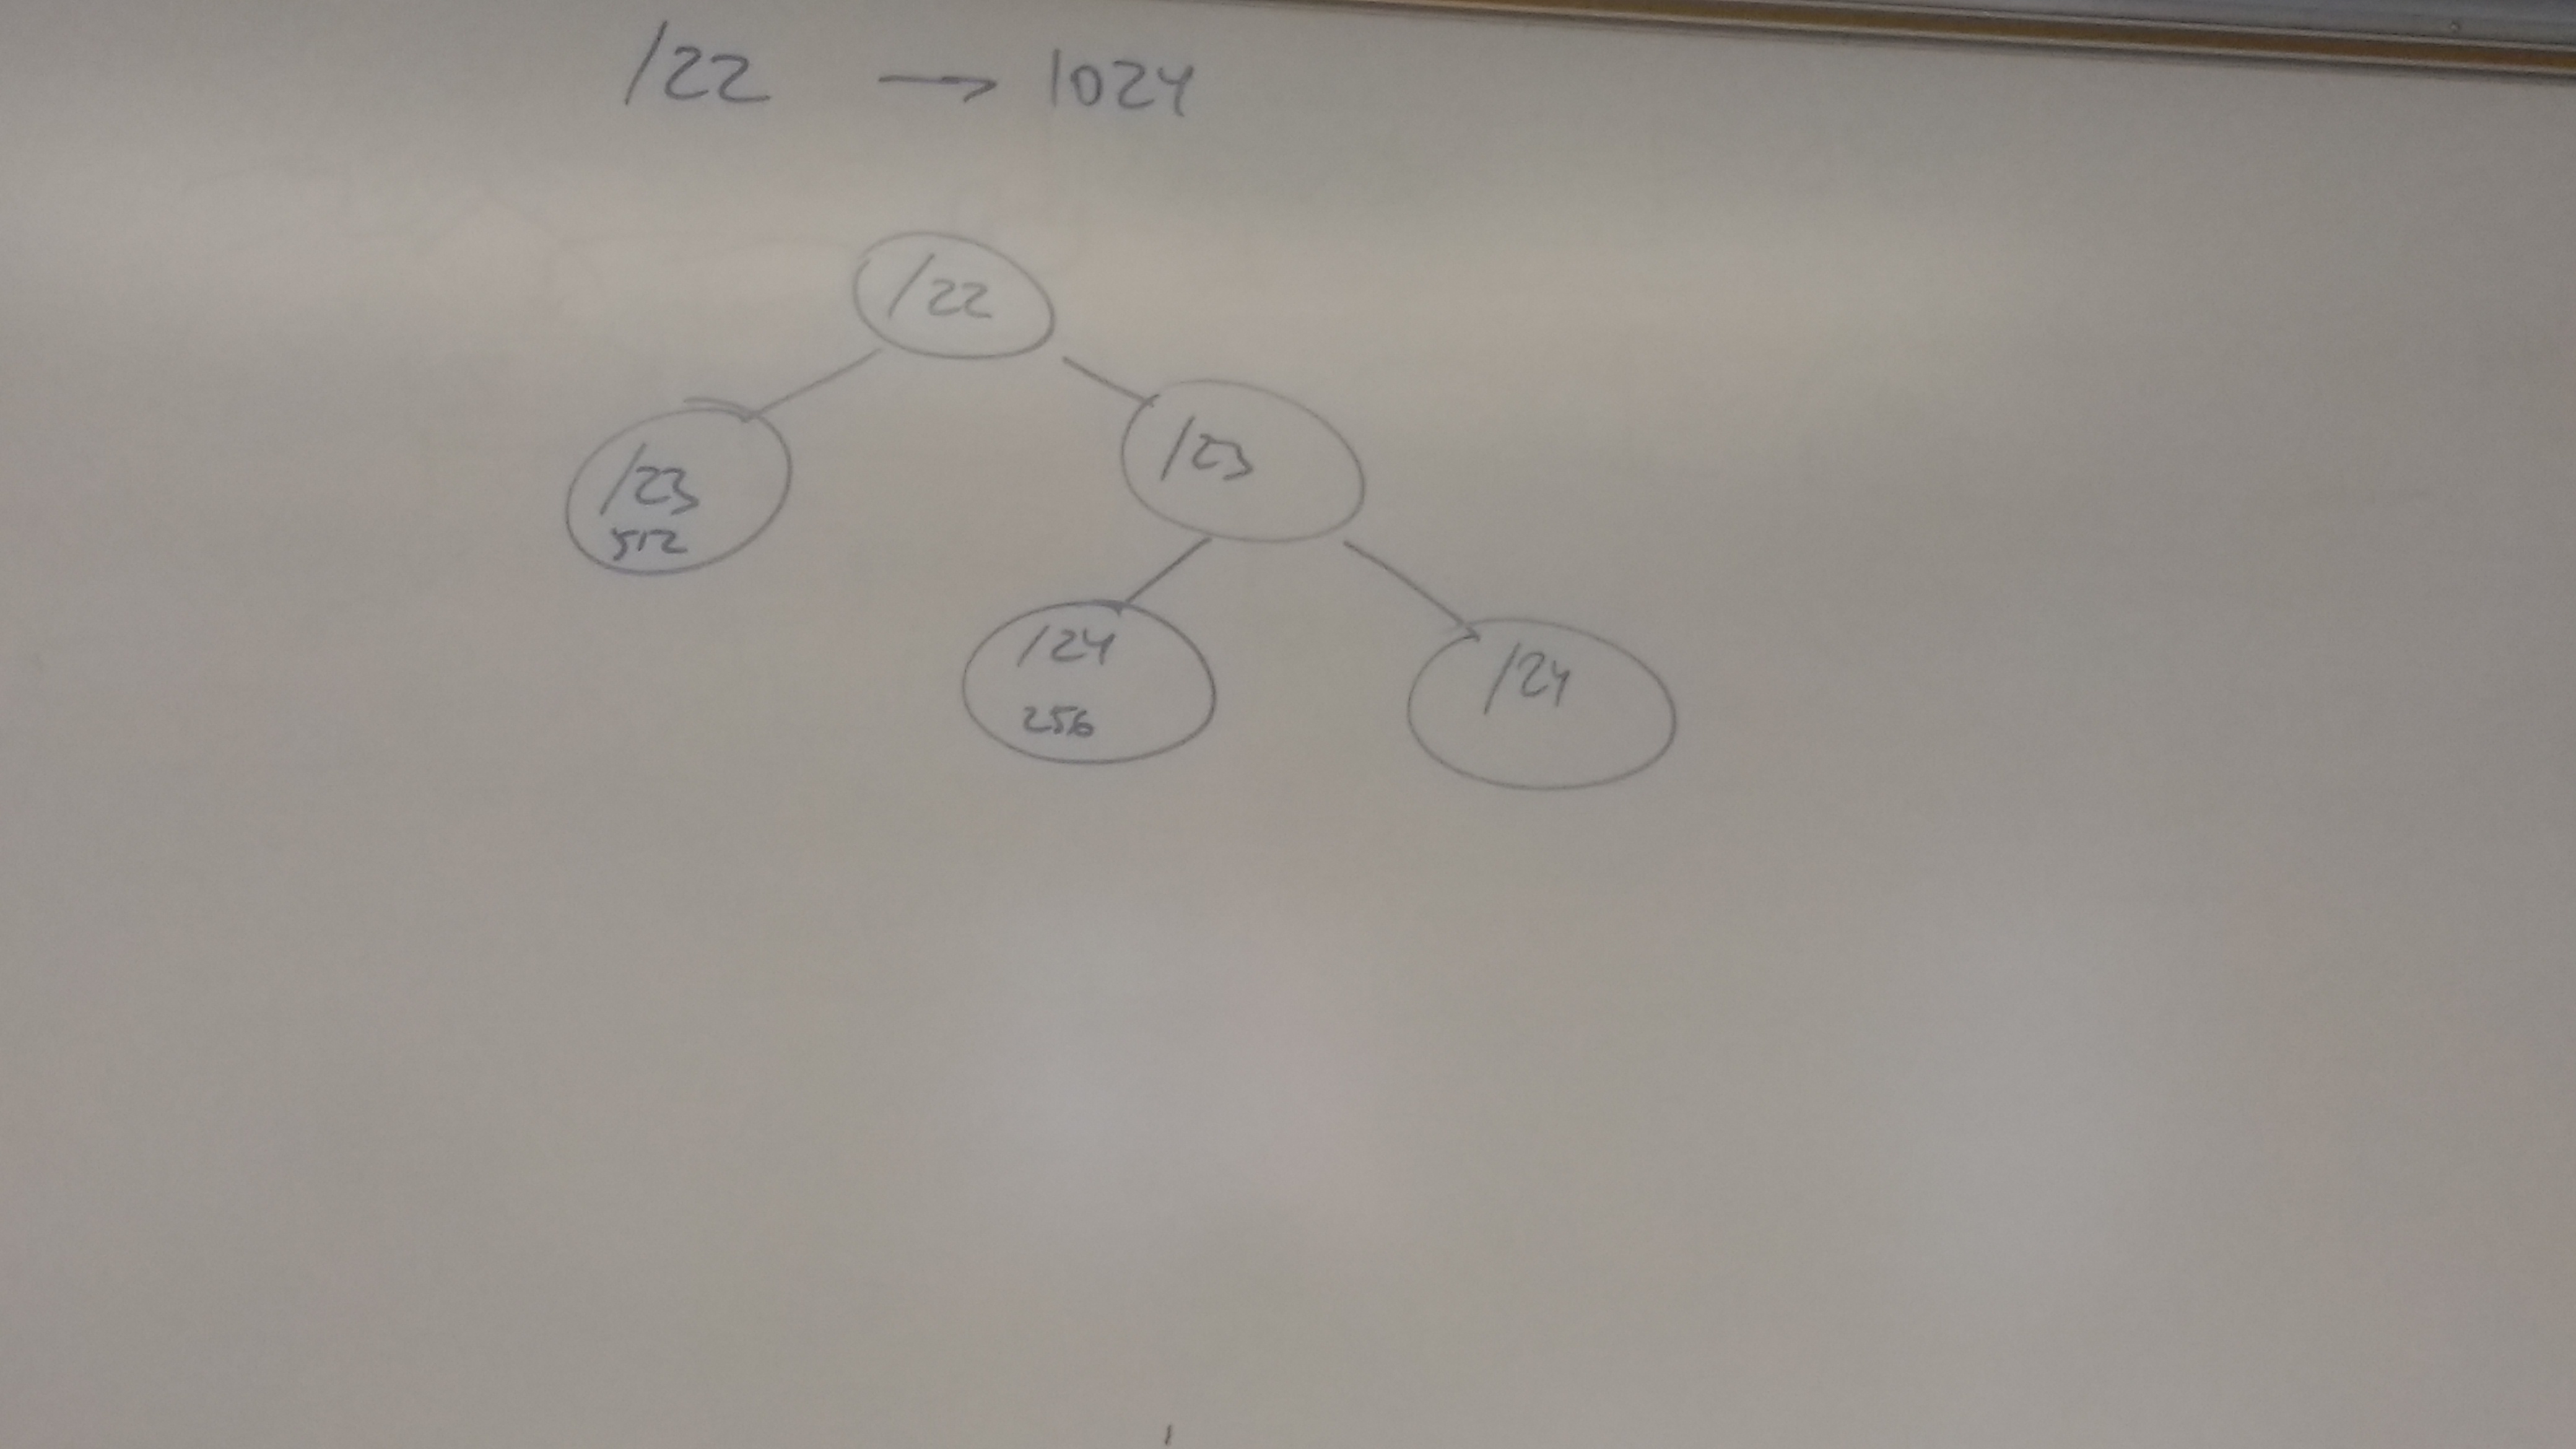 /22 → 1024
/22
/23
512
/23
/24
256
/24